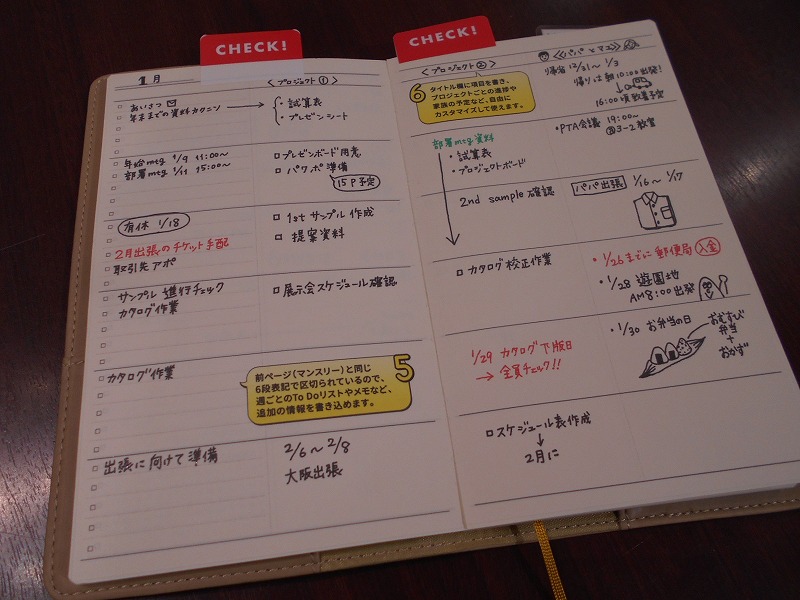 CHECK!
1月
〈プロジェクト①〉
あいさつ
年末までの資料カクニン
・試算表
・プレゼンシート
年始mtg 1/9 11:00～
部署mtg 1/11 15:00～
プレゼンボード用意
パワポ準備
15P予定
有休 1/18
2月出張のチケット手配
取引先アポ
1stサンプル作成
提案資料
サンプル進行チェック
カタログ作業
展示会スケジュール確認
カタログ作業
前ページ(マンスリー)と同じ
6段表記で区切られているので、
週ごとのTo Doリストやメモなど、
追加の情報を書き込めます。
5
出張に向けて準備
2/6～2/8
大阪出張
CHECK!
〈プロジェクト②〉
6
タイトル欄に項目を書き、
プロジェクトごとの進捗や
家族の予定など、自由に
カスタマイズして使えます。
パパとマユ
帰省 12/31～1/3
帰りは朝10:00出発!
16:00頃到着予定
部署mtg資料
・試算表
・プロジェクトボード
・PTA会議 19:00～
3-2教室
2nd sample確認
パパ出張 1/16～1/17
カタログ校正作業
・1/26までに郵便局 入金
・1/28 遊園地
AM8:00出発
1/29 カタログ下版日
→全員チェック!!
・1/30 お弁当の日
おむすび
弁当
+
おかず
スケジュール表作成
2月に